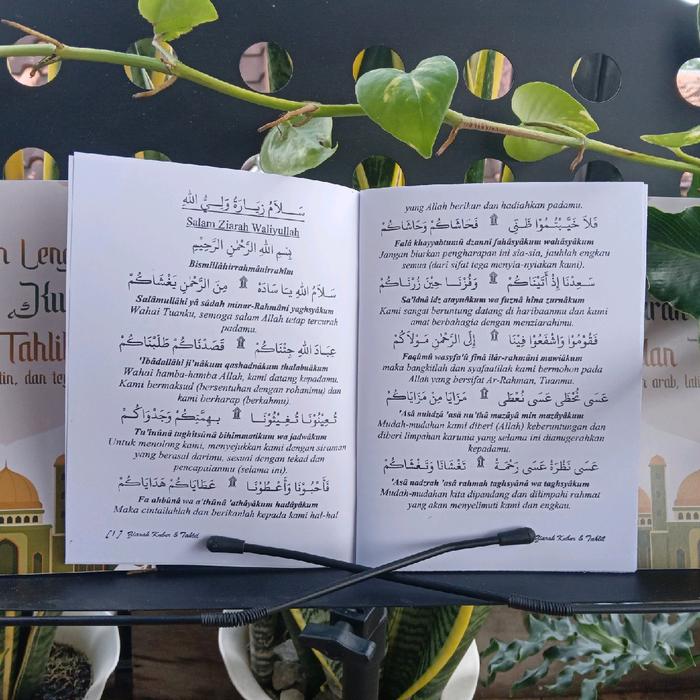 سَلَامُ زِيَارَةُ وَلِيُّ اللهِ
Salam Ziarah Waliyullah
بِسْمِ اللهِ الرَّحْمٰنِ الرَّحِيْمِ
Bismillâhirrahmânirrahîm
سَلَامُ اللهِ يَا سَادَةْ ۩ مِنَ الرَّحْمٰنِ يَغْشَاكُمْ
Salâmullâhi yâ sâdah minar-Rahmâni yaghsyâkum
Wahai Tuanku, semoga salam Allah tetap tercurah
padamu.
عِبَادَ اللهِ جِئْنَاكُمْ ۩ قَصَدْنَاكُمْ طَلَبْنَاكُمْ
'Ibâdallâhi ji'nâkum qashadnâkum thalabnâkum
Wahai hamba-hamba Allah, kami datang kepadamu.
Kami bermaksud (bersentuhan dengan rohanimu) dan
kami berharap (berkahmu).
تُعِيْنُوْنَا تُغِيْثُوْنَا ۩ بِهِمَّتِكُمْ وَجَدْوَاكُمْ
Tu'înûnâ tughîtsûnâ bihimmatikum wa jadwâkum
Untuk menolong kami, menyejukkan kami dengan siraman
yang berasal darimu, sesuai dengan tekad dan
pencapaianmu (selama ini).
فَأَحِبُّوْنَا وَأَعْطُوْنَا ۩ عَطَايَاكُمْ هَدَايَاكُمْ
Fa ahbûnâ wa a'thûnâ 'athâyâkum hadâyâkum
Maka cintailahlah dan berikanlah kepada kami hal-hal
[1] Ziarah Kubur & Tahlil
yang Allah berikan dan hadiahkan padamu.
فَلَا خَيَّبْتُمُوْا ظَنِّى ۩ فَحَاشَاكُمْ وَحَاشَاكُمْ
Falâ khayyabtumû dzannî fahâsyâkum wahâsyâkum
Jangan biarkan pengharapan ini sia-sia, jauhlah engkau
semua (dari sifat tega menyia-nyiakan kami).
سَعِدْنَا إِذْ أَتَيْنَاكُمْ ۩ وَفُزْنَا حِيْنَ زُرْنَاكُمْ
Sa'idnâ idz ataynâkum wa fuznâ hîna zurnâkum
Kami sangat beruntung datang di haribaanmu dan kami
amat berbahagia dengan menziarahimu.
فَقُوْمُوْا وَاشْفَعُوْا فِيْنَا ۩ إِلَى الرَّحْمٰنِ مَوْلَاكُمْ
Faqûmû wasyfa'û fînâ ilâr-rahmâni mawlâkum
maka bangkitlah dan syafaatilah kami bermohon pada
Allah yang bersifat Ar-Rahman, Tuanmu.
عَسَى نُحْظَى عَسَى نُعْطَى ۩ مَزَايَا مِنْ مَزَايَاكُمْ
'Asâ nuhdzâ 'asâ nu'thâ mazâyâ min mazâyâkum
Mudah-mudahan kita diberi (Allah) keberuntungan dan
diberi limpahan karunia yang selama ini dianugerahkan
kepadamu.
عَسَى نَظْرَةْ عَسَى رَحْمَةْ ۩ تَغْشَانَا وَتَغْشَاكُمْ
'Asâ nadzrah 'asâ rahmah taghsyânâ wa taghsyâkum
Mudah-mudahan kita dipandang dan dilimpahi rahmat
yang akan menyelimuti kami dan engkau.
Ziarah Kubur & Tahlil